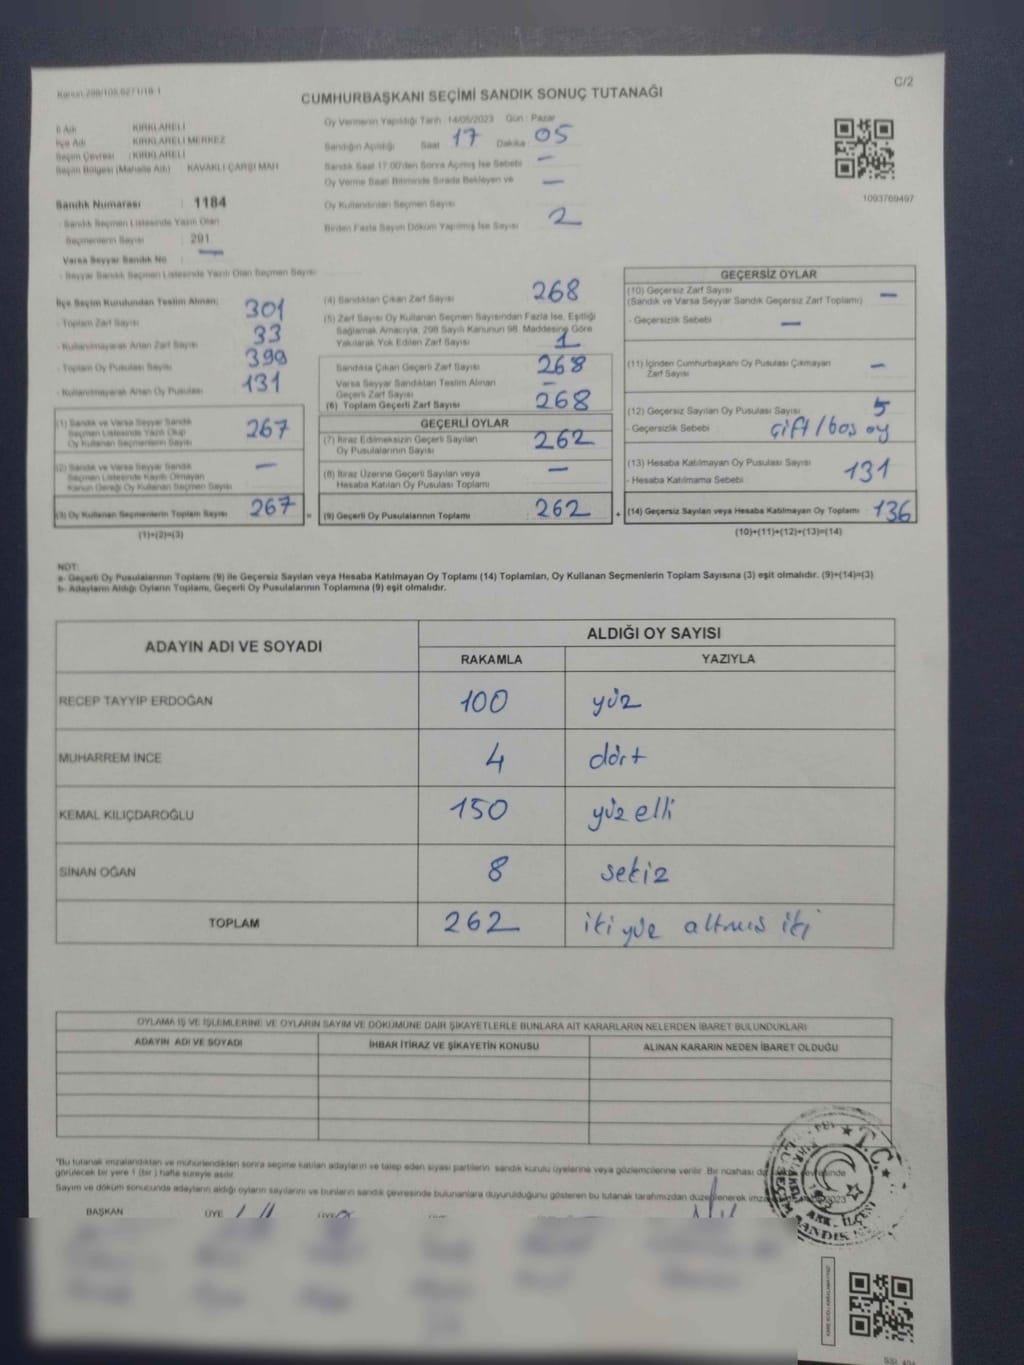 Kanun 298/105,6271/18-1
C/2
CUMHURBAŞKANI SEÇİMİ SANDIK SONUÇ TUTANAĞI
İl Adı KIRKLARELİ
İlçe Adı KIRKLARELİ MERKEZ
Seçim Çevresi : KIRKLARELİ
Seçim Bölgesi (Mahalle Adı) KAVAKLI ÇARŞI MAH
Sandık Numarası : 1184
- Sandık Seçmen Listesinde Yazılı Olan
Seçmenlerin Sayısı : 291
Varsa Seyyar Sandık No —
- Seyyar Sandık Seçmen Listesinde Yazılı Olan Seçmen Sayısı
Oy Vermenin Yapıldığı Tarih : 14/05/2023 Gün : Pazar
Sandığın Açıldığı Saat 17 Dakika : 05
Sandık Saat 17.00'den Sonra Açılmış İse Sebebi —
Oy Verme Saati Bitiminde Sırada Bekleyen ve —
Oy Kullandırılan Seçmen Sayısı
Birden Fazla Sayım Döküm Yapılmış İse Sayısı 2
1093769497
İlçe Seçim Kurulundan Teslim Alınan;
- Toplam Zarf Sayısı 301
- Kullanılmayarak Artan Zarf Sayısı 33
- Toplam Oy Pusulası Sayısı 399
- Kullanılmayarak Artan Oy Pusulası 131
(1) Sandık ve Varsa Seyyar Sandık
Seçmen Listesinde Yazılı Olup
Oy Kullanan Seçmenlerin Sayısı 267
(2) Sandık ve Varsa Seyyar Sandık
Seçmen Listesinde Kayıtlı Olmayan
Kanun Gereği Oy Kullanan Seçmen Sayısı —
(3) Oy Kullanan Seçmenlerin Toplam Sayısı 267 =
(1)+(2)=(3)
(4) Sandıktan Çıkan Zarf Sayısı 268
(5) Zarf Sayısı Oy Kullanan Seçmen Sayısından Fazla İse, Eşitliği
Sağlamak Amacıyla, 298 Sayılı Kanunun 98. Maddesine Göre
Yakılarak Yok Edilen Zarf Sayısı 1
Sandıkta Çıkan Geçerli Zarf Sayısı 268
Varsa Seyyar Sandıktan Teslim Alınan
Geçerli Zarf Sayısı —
(6) Toplam Geçerli Zarf Sayısı 268
GEÇERLİ OYLAR
(7) İtiraz Edilmeksizin Geçerli Sayılan
Oy Pusulalarının Sayısı 262
(8) İtiraz Üzerine Geçerli Sayılan veya
Hesaba Katılan Oy Pusulası Toplamı —
(9) Geçerli Oy Pusulalarının Toplamı 262 +
GEÇERSİZ OYLAR
(10) Geçersiz Zarf Sayısı
(Sandık ve Varsa Seyyar Sandık Geçersiz Zarf Toplamı) —
- Geçersizlik Sebebi —
(11) İçinden Cumhurbaşkanı Oy Pusulası Çıkmayan
Zarf Sayısı —
(12) Geçersiz Sayılan Oy Pusulası Sayısı 5
- Geçersizlik Sebebi çift/boş oy
(13) Hesaba Katılmayan Oy Pusulası Sayısı 131
- Hesaba Katılmama Sebebi
(14) Geçersiz Sayılan veya Hesaba Katılmayan Oy Toplamı 136
(10)+(11)+(12)+(13)=(14)
NOT:
a- Geçerli Oy Pusulalarının Toplamı (9) ile Geçersiz Sayılan veya Hesaba Katılmayan Oy Toplamı (14) Toplamları, Oy Kullanan Seçmenlerin Toplam Sayısına (3) eşit olmalıdır. (9)+(14)=(3)
b- Adayların Aldığı Oyların Toplamı, Geçerli Oy Pusulalarının Toplamına (9) eşit olmalıdır.
ADAYIN ADI VE SOYADI
ALDIĞI OY SAYISI
RAKAMLA YAZIYLA
RECEP TAYYİP ERDOĞAN 100 yüz
MUHARREM İNCE 4 dört
KEMAL KILIÇDAROĞLU 150 yüz elli
SİNAN OĞAN 8 sekiz
TOPLAM 262 iki yüz altmış iki
OYLAMA İŞ VE İŞLEMLERİNE VE OYLARIN SAYIM VE DÖKÜMÜNE DAİR ŞİKAYETLERLE BUNLARA AİT KARARLARIN NELERDEN İBARET BULUNDUKLARI
ADAYIN ADI VE SOYADI İHBAR İTİRAZ VE ŞİKAYETİN KONUSU ALINAN KARARIN NEDEN İBARET OLDUĞU
"Bu tutanak imzalandıktan ve mühürlendikten sonra seçime katılan adayların ve talep eden siyasi partilerin sandık kurulu üyelerine veya gözlemcilerine verilir. Bir nüshası da çevresinde
görülecek bir yere 1 (bir) hafta süreyle asılır.
Sayım ve döküm sonucunda adayların aldığı oyların sayılarını ve bunların sandık çevresinde bulunanlara duyurulduğunu gösteren bu tutanak tarafımızdan düzenlenerek 2023
BAŞKAN ÜYE ÜYE
T.C.
SANDIK